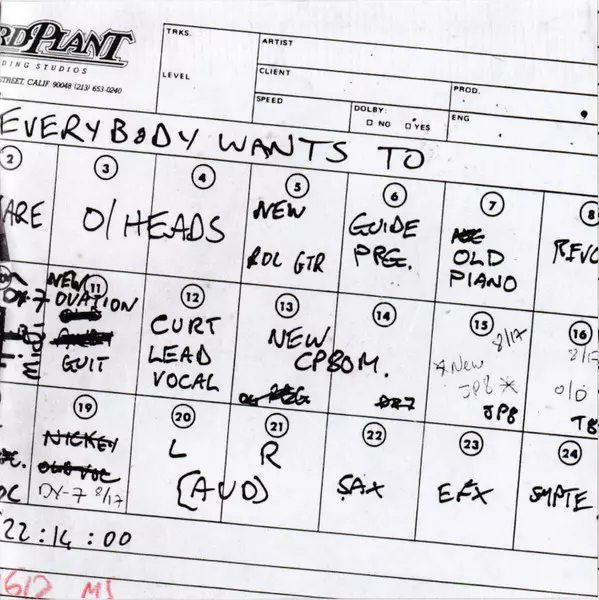 RDPLANT
DING STUDIOS
STREET, CALIF. 90048 (213) 653-0240
TRKS.
LEVEL
ARTIST
CLIENT
SPEED
DOLBY:
NO YES
PROD.
ENG
EVERYBODY WANTS TO
2 3 4 5 6 7 8
ARE
O/HEADS
NEW
RDL GTR
GUIDE
PRG.
OLD
PIANO
REVC
DX-7
MIDI
NEW 11
OVATION
GUIT
12
CURT
LEAD
VOCAL
13 14
NEW
CPBOM.
DX7
15
8/17
* New
JP8 *
JP8
16
8/17
O/D
TB
19
NICKEY
OLD VOC
DX-7 8/17
20 21
L R
(AUD)
22
SAX
23
EFX
24
SMPTE
OC
22:14:00
612 MS